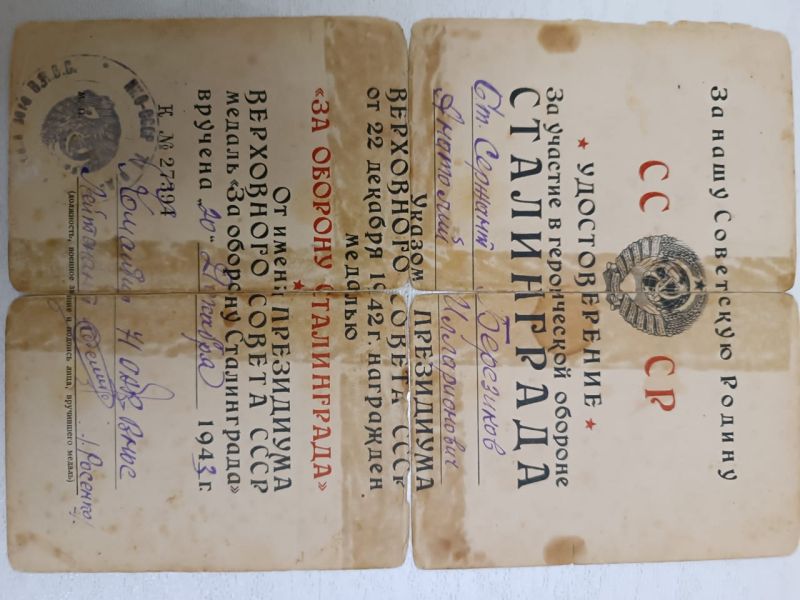 За нашу Советскую Родину
СС СР
★ УДОСТОВЕРЕНИЕ ★
За участие в героической обороне
СТАЛИНГРАДА
Ст. Сержант Березинов
Анатолий Илларионович
Указом ПРЕЗИДИУМА
ВЕРХОВНОГО СОВЕТА СССР
от 22 декабря 1942 г. награжден
медалью
«ЗА ОБОРОНУ СТАЛИНГРАДА»
★
От имени ПРЕЗИДИУМА
ВЕРХОВНОГО СОВЕТА СССР
медаль «За оборону Сталинграда»
вручена „20“ Декабря 1943 г.
К № 27394
Командир 71 ВНОС
Лейтенант
(должность, военное звание и подпись лица, вручившего медаль)